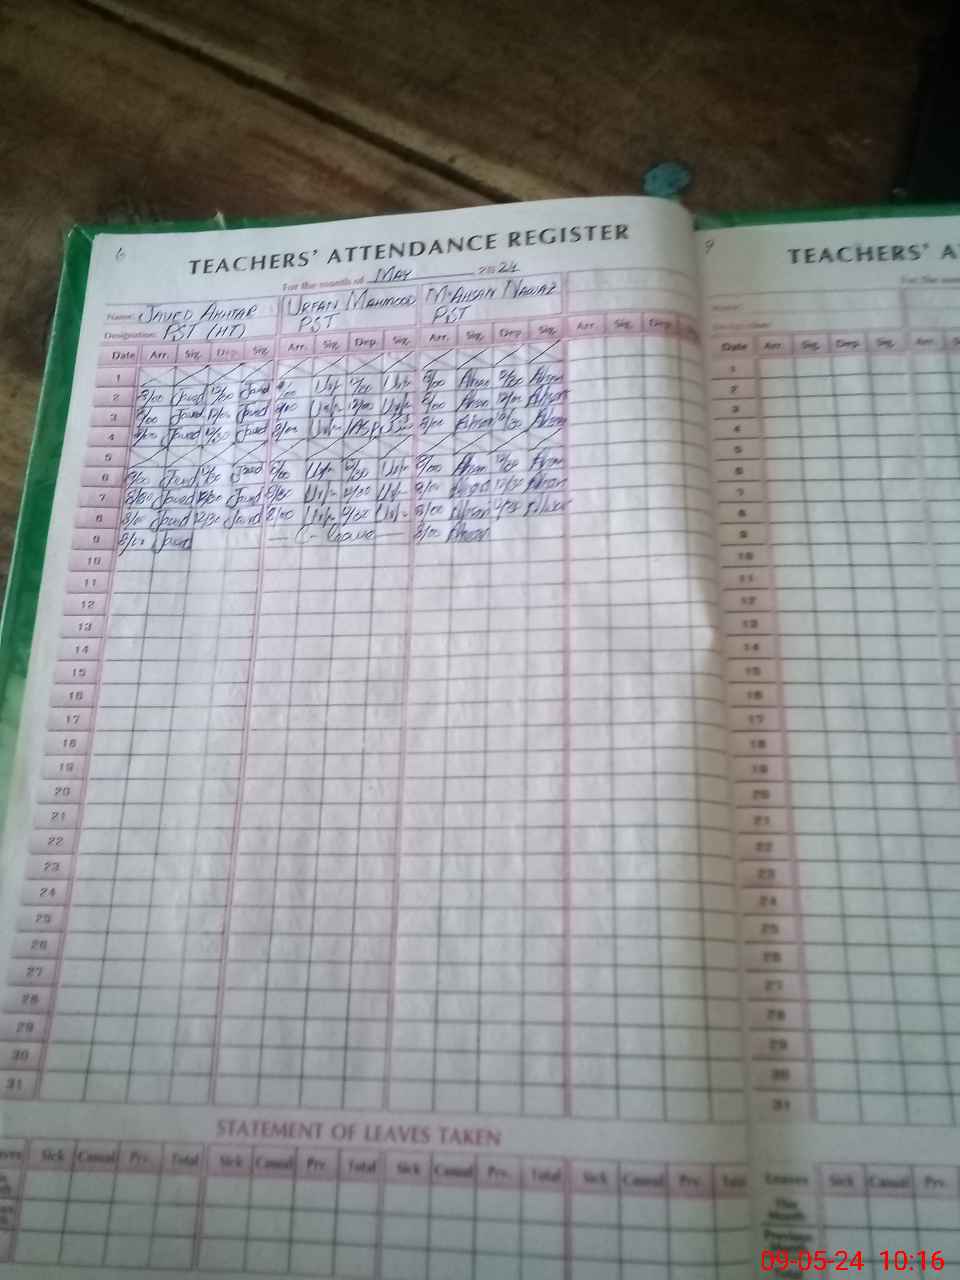 6
TEACHERS' ATTENDANCE REGISTER
For the month of MAY 2024
Name: JAVED AKHTAR URFAN MAHMOOD M. AHSAN NAWAZ
Designation: PST (HT) PST PST
Date Arr. Sig. Dep. Sig. Arr. Sig. Dep. Sig. Arr. Sig. Dep. Sig. Arr. Sig. Dep.
1
2 8/00 Javed 12/00 Javed 8/00 Urf 12/00 Urf 8/00 Ahsan 12/00 Ahsan
3 8/00 Javed 12/00 Javed 8/00 Urf 12/00 Urf 8/00 Ahsan 12/00 Ahsan
4 8/00 Javed 12/30 Javed 8/00 Urf 8/00 Ahsan 12/30 Ahsan
5
6 8/00 Javed 12/30 Javed 8/00 Urf 12/30 Urf 8/00 Ahsan 12/30 Ahsan
7 8/00 Javed 12/30 Javed 8/00 Urf 12/30 Urf 8/00 Ahsan 12/30 Ahsan
8 8/00 Javed 12/30 Javed 8/00 Urf 12/30 Urf 8/00 Ahsan 12/30 Ahsan
9 8/00 Javed — C - Leave — 8/00 Ahsan
10
11
12
13
14
15
16
17
18
19
20
21
22
23
24
25
26
27
28
29
30
31
STATEMENT OF LEAVES TAKEN
Sick Casual Prv. Total Sick Casual Prv. Total Sick Casual Prv. Total Sick Casual Prv. Total
TEACHERS' A
Date Arr. Sig. Dep. Sig. Arr.
1
2
3
4
5
6
7
8
9
10
11
12
13
14
15
16
17
18
19
20
21
22
23
24
25
26
27
28
29
30
31
Leaves Sick Casual Prv.
This Month
Previous
09-05-24 10:16